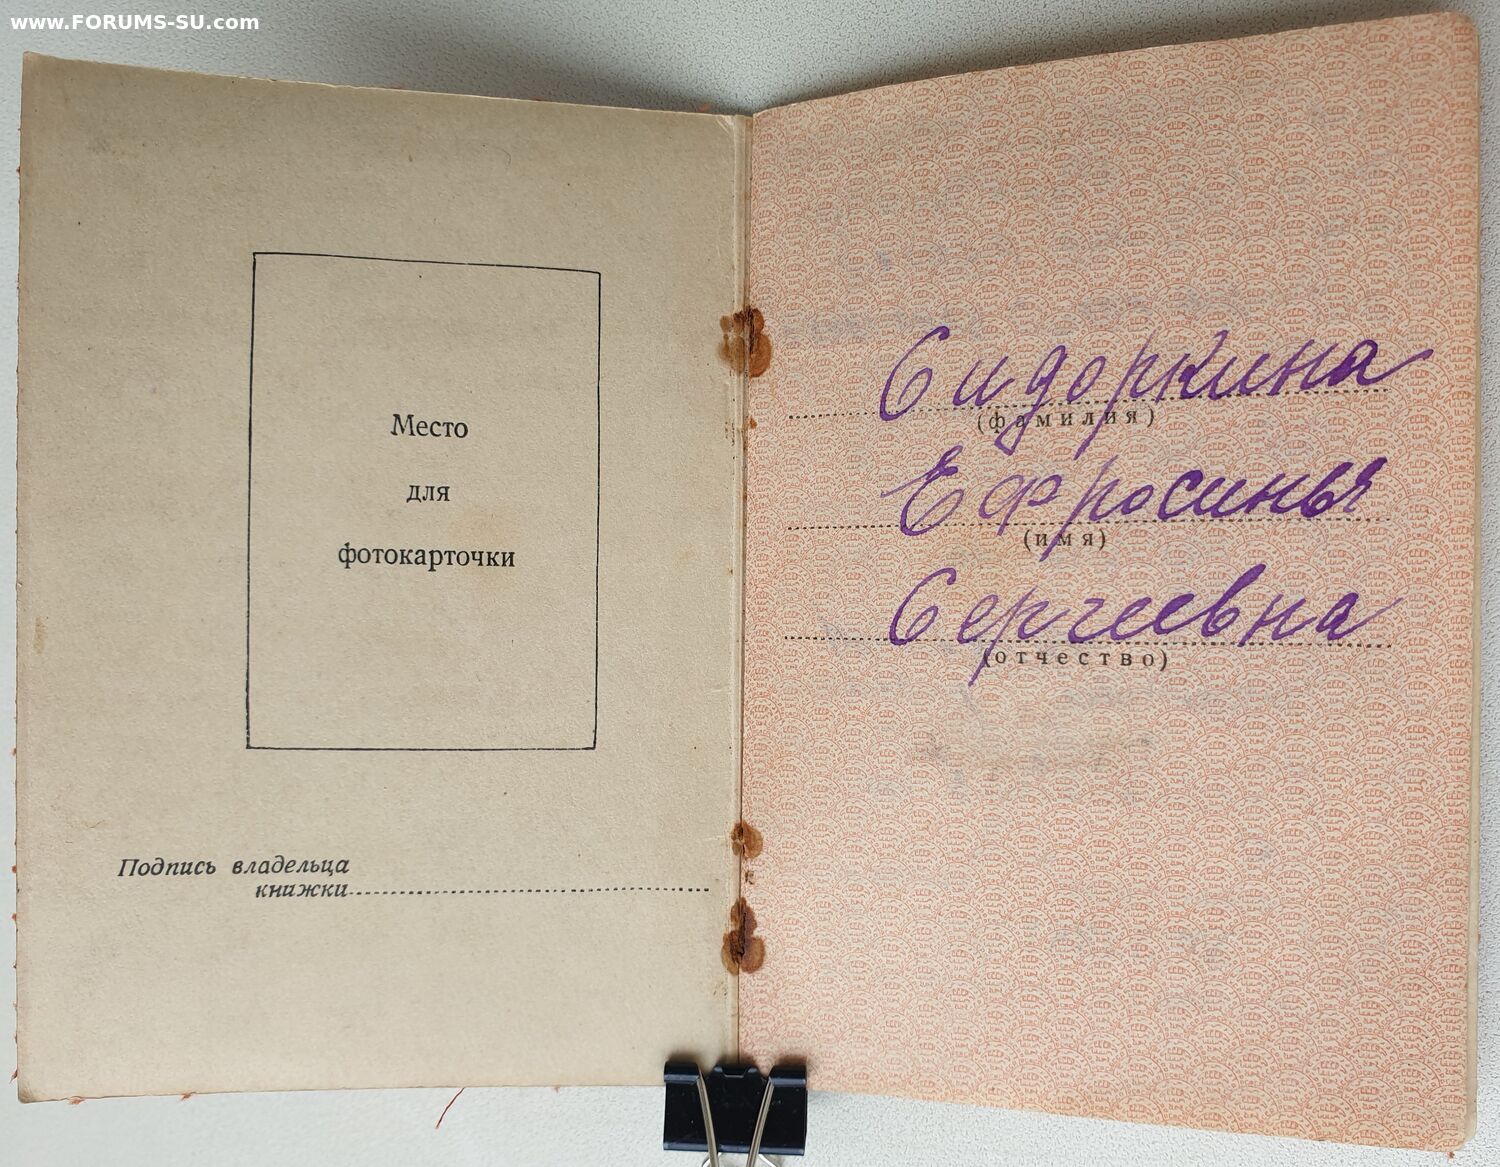 www.FORUMS-SU.com
Место
для
фотокарточки
Подпись владельца
книжки
Сидоркина
(фамилия)
Ефросинья
(имя)
Сергеевна
(отчество)